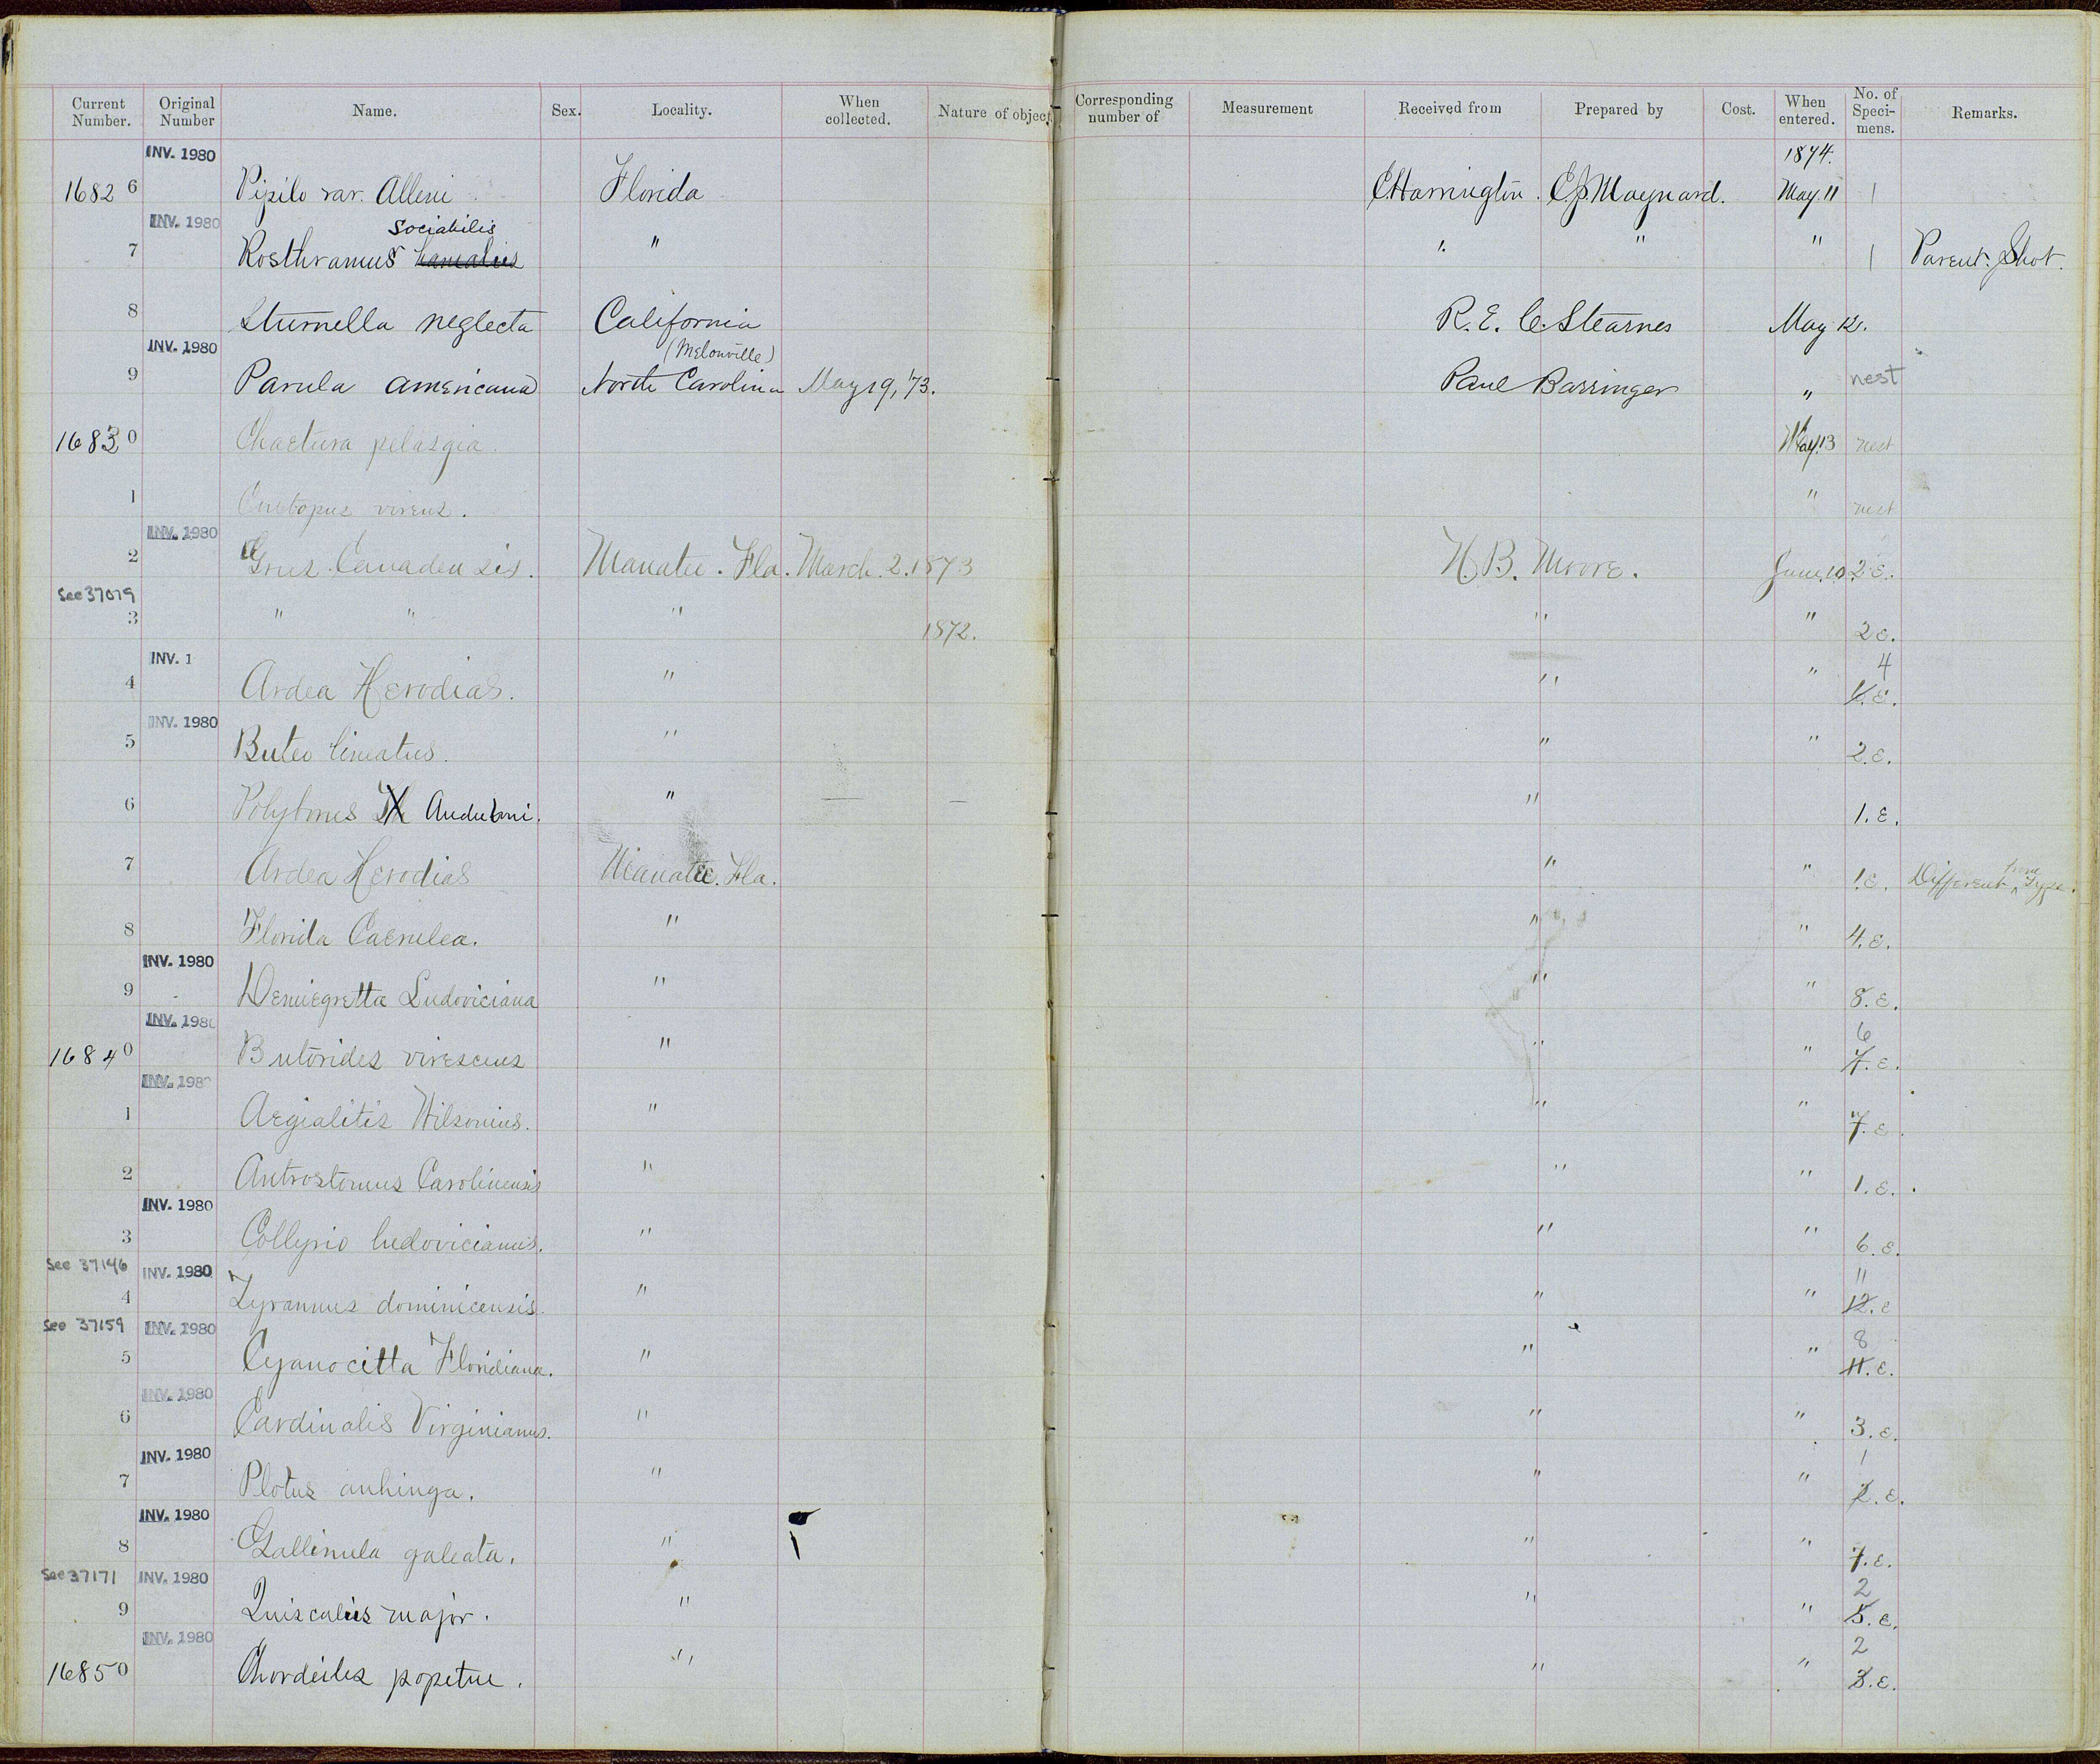 Current Number. Original Number Name. Sex. Locality. When collected. Nature of object. Corresponding number of Measurement Received from Prepared by Cost. When entered. No. of Speci-mens. Remarks.
INV. 1980 1874.
16826 Pipilo var. Alleni Florida C Harrington. C.J. Maynard. May. 11 1
INV. 1980 Sociabilis
7 Rosthramus hamatus " " " " 1 Parent. Shot.
8 Sturnella neglecta California R. E. C. Stearnes May 12.
INV. 1980 (Melonville)
9 Parula americana North Carolina May 19, '73. Paul Barringer " nest
16830 Chaetura pelasgia. May. 13 nest
1 Contopus virens. " nest
INV. 1980
2 Grus. Canadensis. Manatee. Fla. March. 2. 1873 N. B. Moore. June. 10 2 E.
See 37079
3 " " " 1872. " " 2 E.
INV. 1 4
4 Ardea Herodias. " " " E.
INV. 1980
5 Buteo lineatus. " " " 2. E.
6 Polyborus Th Auduboni. " — — " 1. E.
7 Ardea Herodias Manatee. Fla. " " 1. E. Different from Type.
8 Florida Caerulea. " " " 4. E.
INV. 1980
9 Demiegretta Ludoviciana " " " 8. E.
INV. 1980 6
16840 Butorides virescens " " " 7. E.
INV. 198
1 Aegialitis Wilsonius. " " " 7. E
2 Antrostomus Carolinensis " " " 1. E.
INV. 1980
3 Collyrio ludovicianus. " " " 6. E.
See 37146 INV. 1980 11
4 Tyrannus dominicensis. " " " 12. E
See 37159 INV. 1980 8
5 Cyanocitta Floridiana. " " " 11. E.
INV. 1980
6 Cardinalis Virginianus. " " " 3. E.
INV. 1980 1
7 Plotus anhinga. " " " 2. E.
INV. 1980
8 Gallinula galeata. " " " 7. E.
See 37171 INV. 1980 2
9 Quiscalus major. " " " 5. E.
INV. 1980 2
16850 Chordeiles popetue. " " " 3. E.